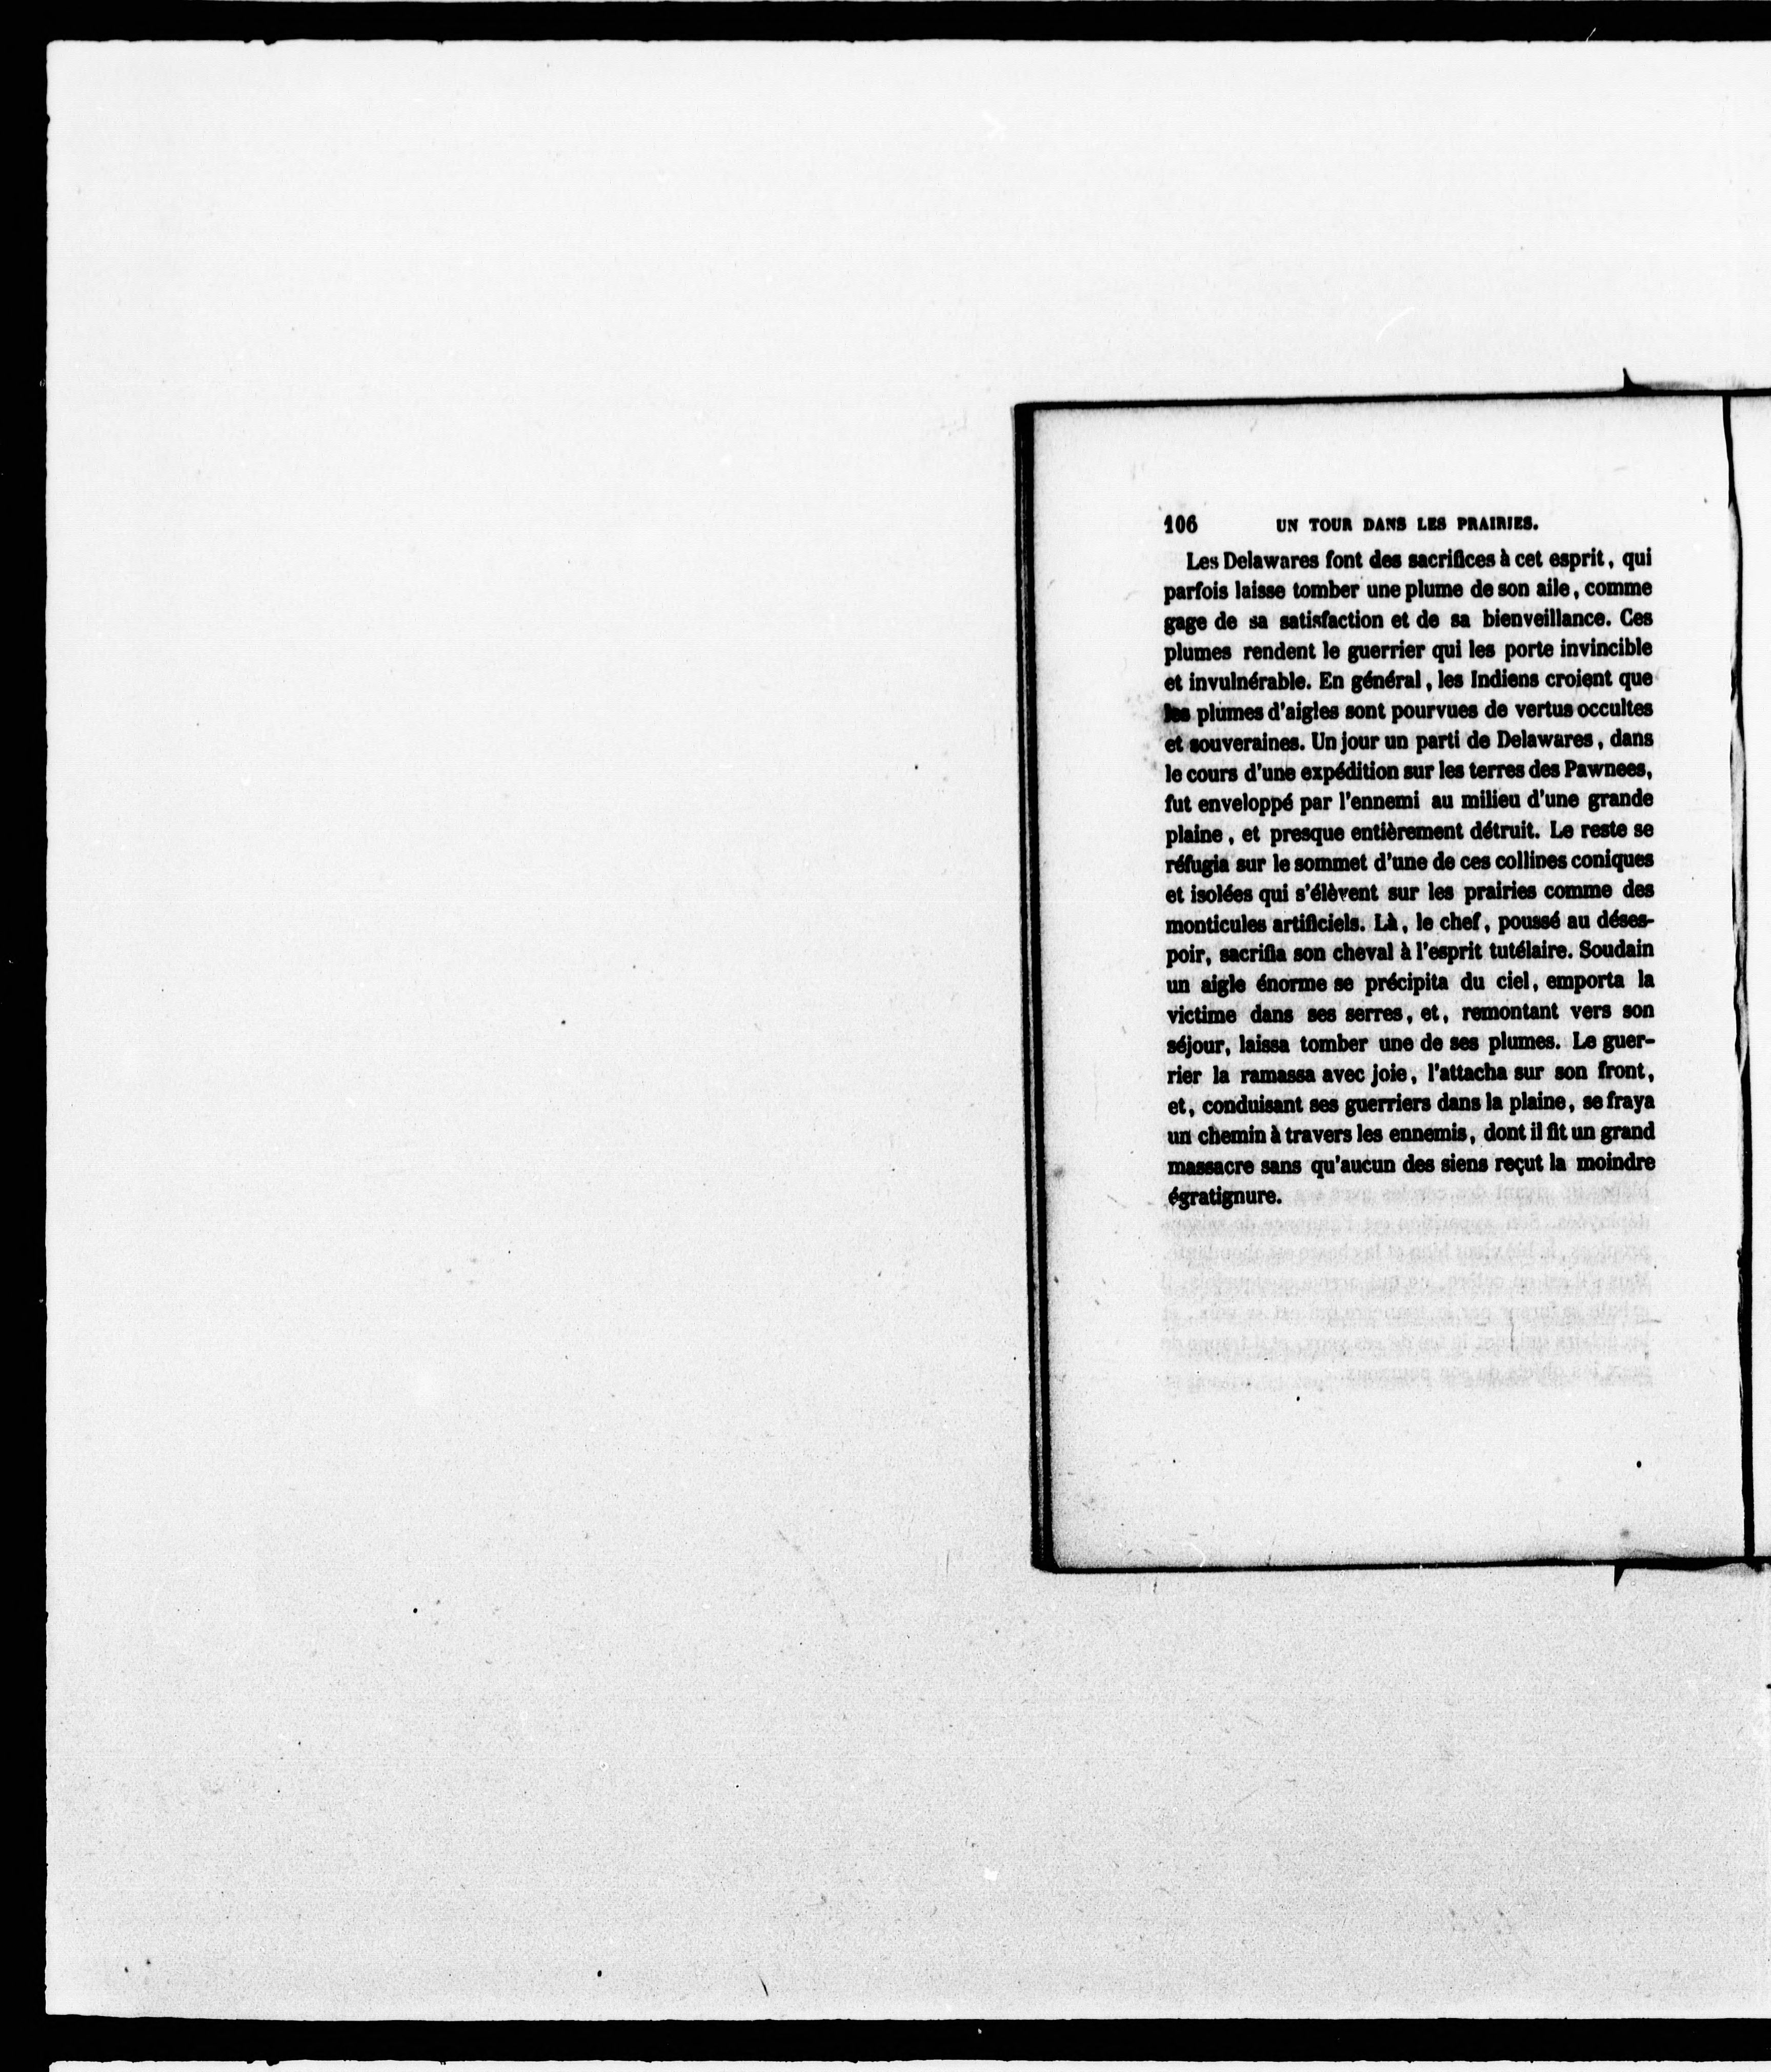 106 UN TOUR DANS LES PRAIRIES.
Les Delawares font des sacrifices à cet esprit, qui
parfois laisse tomber une plume de son aile, comme
gage de sa satisfaction et de sa bienveillance. Ces
plumes rendent le guerrier qui les porte invincible
et invulnérable. En général, les Indiens croient que
les plumes d'aigles sont pourvues de vertus occultes
et souveraines. Un jour un parti de Delawares, dans
le cours d'une expédition sur les terres des Pawnees,
fut enveloppé par l'ennemi au milieu d'une grande
plaine, et presque entièrement détruit. Le reste se
réfugia sur le sommet d'une de ces collines coniques
et isolées qui s'élèvent sur les prairies comme des
monticules artificiels. Là, le chef, poussé au déses-
poir, sacrifia son cheval à l'esprit tutélaire. Soudain
un aigle énorme se précipita du ciel, emporta la
victime dans ses serres, et, remontant vers son
séjour, laissa tomber une de ses plumes. Le guer-
rier la ramassa avec joie, l'attacha sur son front,
et, conduisant ses guerriers dans la plaine, se fraya
un chemin à travers les ennemis, dont il fit un grand
massacre sans qu'aucun des siens reçut la moindre
égratignure.